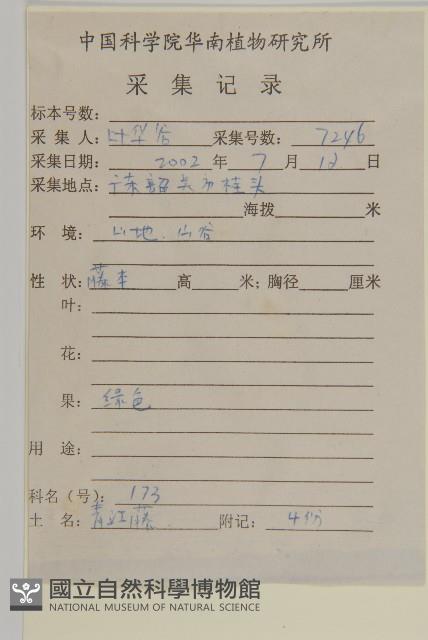 中国科学院华南植物研究所
采集记录
标本号数:
采集人: 叶华谷 采集号数: 7246
采集日期: 2002 年 7 月 12 日
采集地点: 广东韶关市桂头
海拨 米
环境: 山地. 山谷
性状: 藤本 高 米; 胸径 厘米
叶:
花:
果: 绿色
用途:
科名(号): 173
土名: 青江藤 附记: 4份
國立自然科學博物館
NATIONAL MUSEUM OF NATURAL SCIENCE